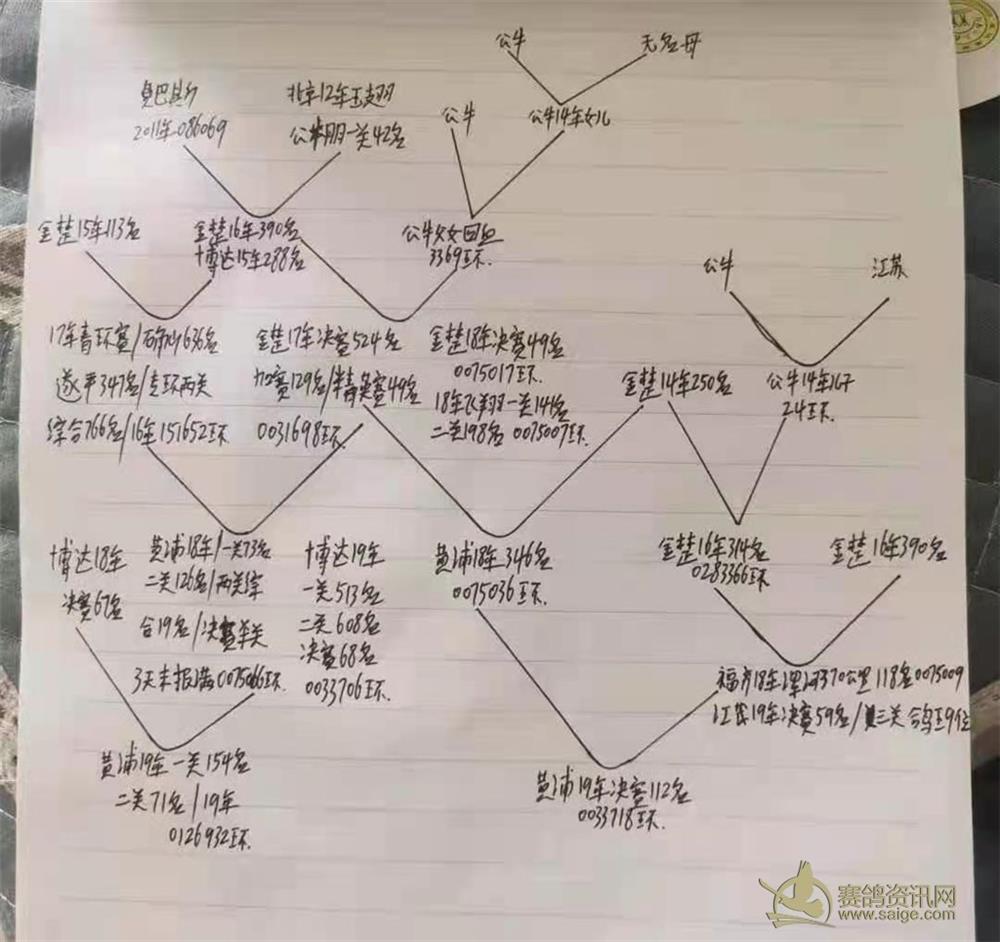 公牛
无名母
北京12年五翅
2011年086069
公牛
公牛14年女儿
一关42名
金楚15年113名
金楚16年390名
博达15年288名
公牛父女回血
3369环
公牛
江苏
17年青环赛/
636名
遂平347名/专环两关
综合766名/16年151652环
金楚17年决赛524名
加赛129名/
49名
0031698环
金楚18年决赛49名
0075017环
18年飞翔一关141名
二关198名 0075007环
金楚14年250名
公牛14年
24环
博达18年
决赛67名
黄浦18年/一关73名
二关126名/两关综
合19名/决赛关
3天未报满0075066环
博达19年
一关513名
二关608名
决赛68名
0033706环
黄浦18年346名
0075036环
金楚16年314名
0283366环
金楚16年390名
福方18年漯河370公里118名0075009
江苏19年决赛59名/三关鸽王9位
黄浦19年一关154名
二关71名/19年
0126932环
黄浦19年决赛112名
0033718环
赛鸽资讯网
www.saige.com